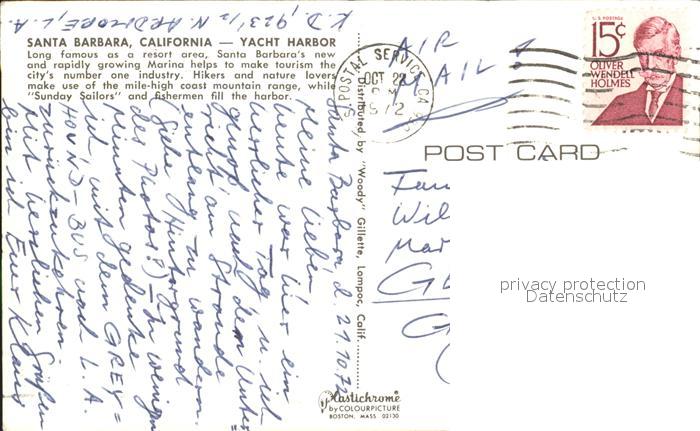 K. D., 923 1/2 N. ARDMORE, L.A.
SANTA BARBARA, CALIFORNIA — YACHT HARBOR
Long famous as a resort area, Santa Barbara's new
and rapidly growing Marina helps to make tourism the
city's number one industry. Hikers and nature lovers
make use of the mile-high coast mountain range, while
"Sunday Sailors" and fishermen fill the harbor.
Santa Barbara, d. 21.10.72
Meine Lieben,
heute war hier ein
herrlicher Tag u. ich
den Unter=
am Strande
entlang zu wandern.
(Siehe Hintergrund
des Photos!) – In wenigen
Minuten gedenke
ich, mit dem GREY=
HOUND-BUS nach L.A.
zurückzukehren.
Mit herzlichen Grüßen
bin ich Euer Klaus
Distributed by "Woody" Gillette, Lompoc, Calif.
Plastichrome
by COLOURPICTURE
BOSTON, MASS 02130
U.S. POSTAL SERVICE, CA
OCT 22
PM
1972
AIR
MAIL
U.S. POSTAGE
15¢
OLIVER
WENDELL
HOLMES
POST CARD
Fam
Wil
Mar
privacy protection
Datenschutz